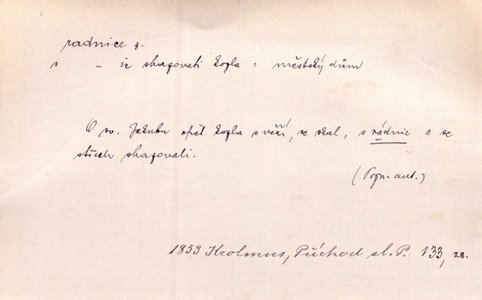 radnice ž.
s - ir shazovati kozla : městský dům
O sv. Jakubu opět kozla s věží, se skal, s rádnic a se
střech shazovali.
(Pozn. aut.)
1853 Krolmus, Příchod sl. P. 133, 28.